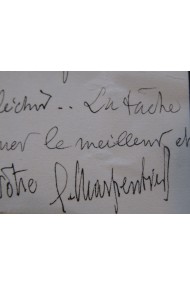 La tâche
mer le meilleur et
vôtre G. Charpentier